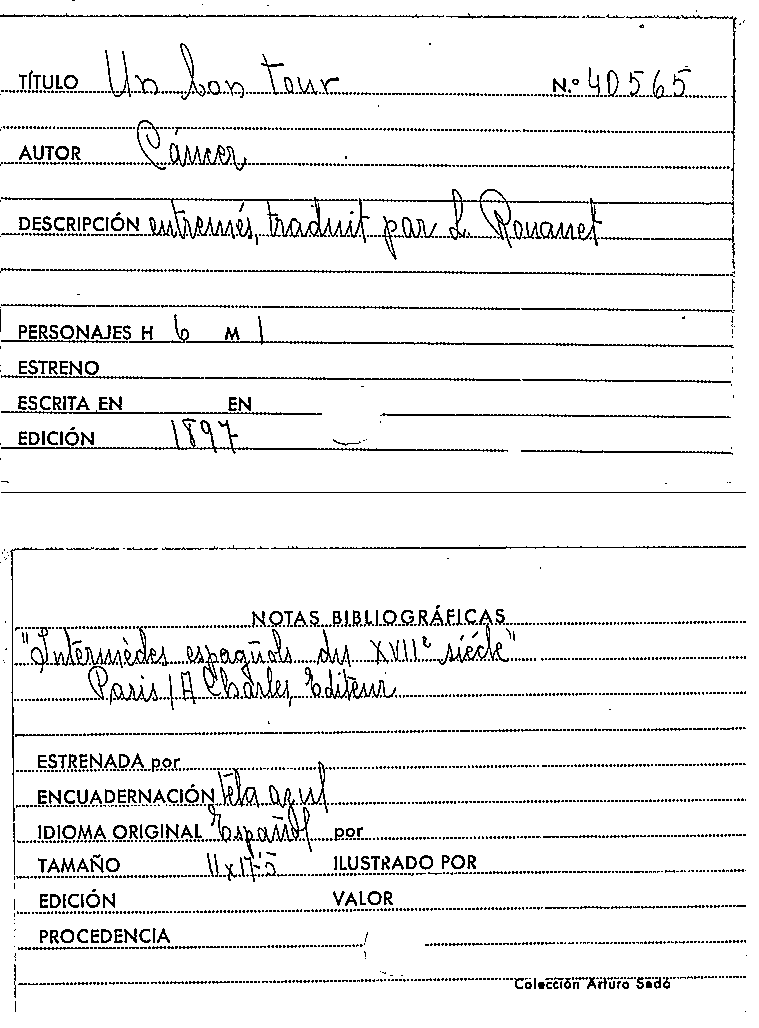 TÍTULO Un bon tour N.º 40565
AUTOR Cáncer
DESCRIPCIÓN entremés, traduit par L. Rouanet
PERSONAJES H 6 M 1
ESTRENO
ESCRITA EN EN
EDICIÓN 1897
NOTAS BIBLIOGRÁFICAS
"Intermèdes espagñols du XVIIe siécle"
Paris / A Charles, Editeur
ESTRENADA por
ENCUADERNACIÓN tela azul
IDIOMA ORIGINAL Español por
TAMAÑO 11x17'5 ILUSTRADO POR
EDICIÓN VALOR
PROCEDENCIA
Colección Arturo Sedó